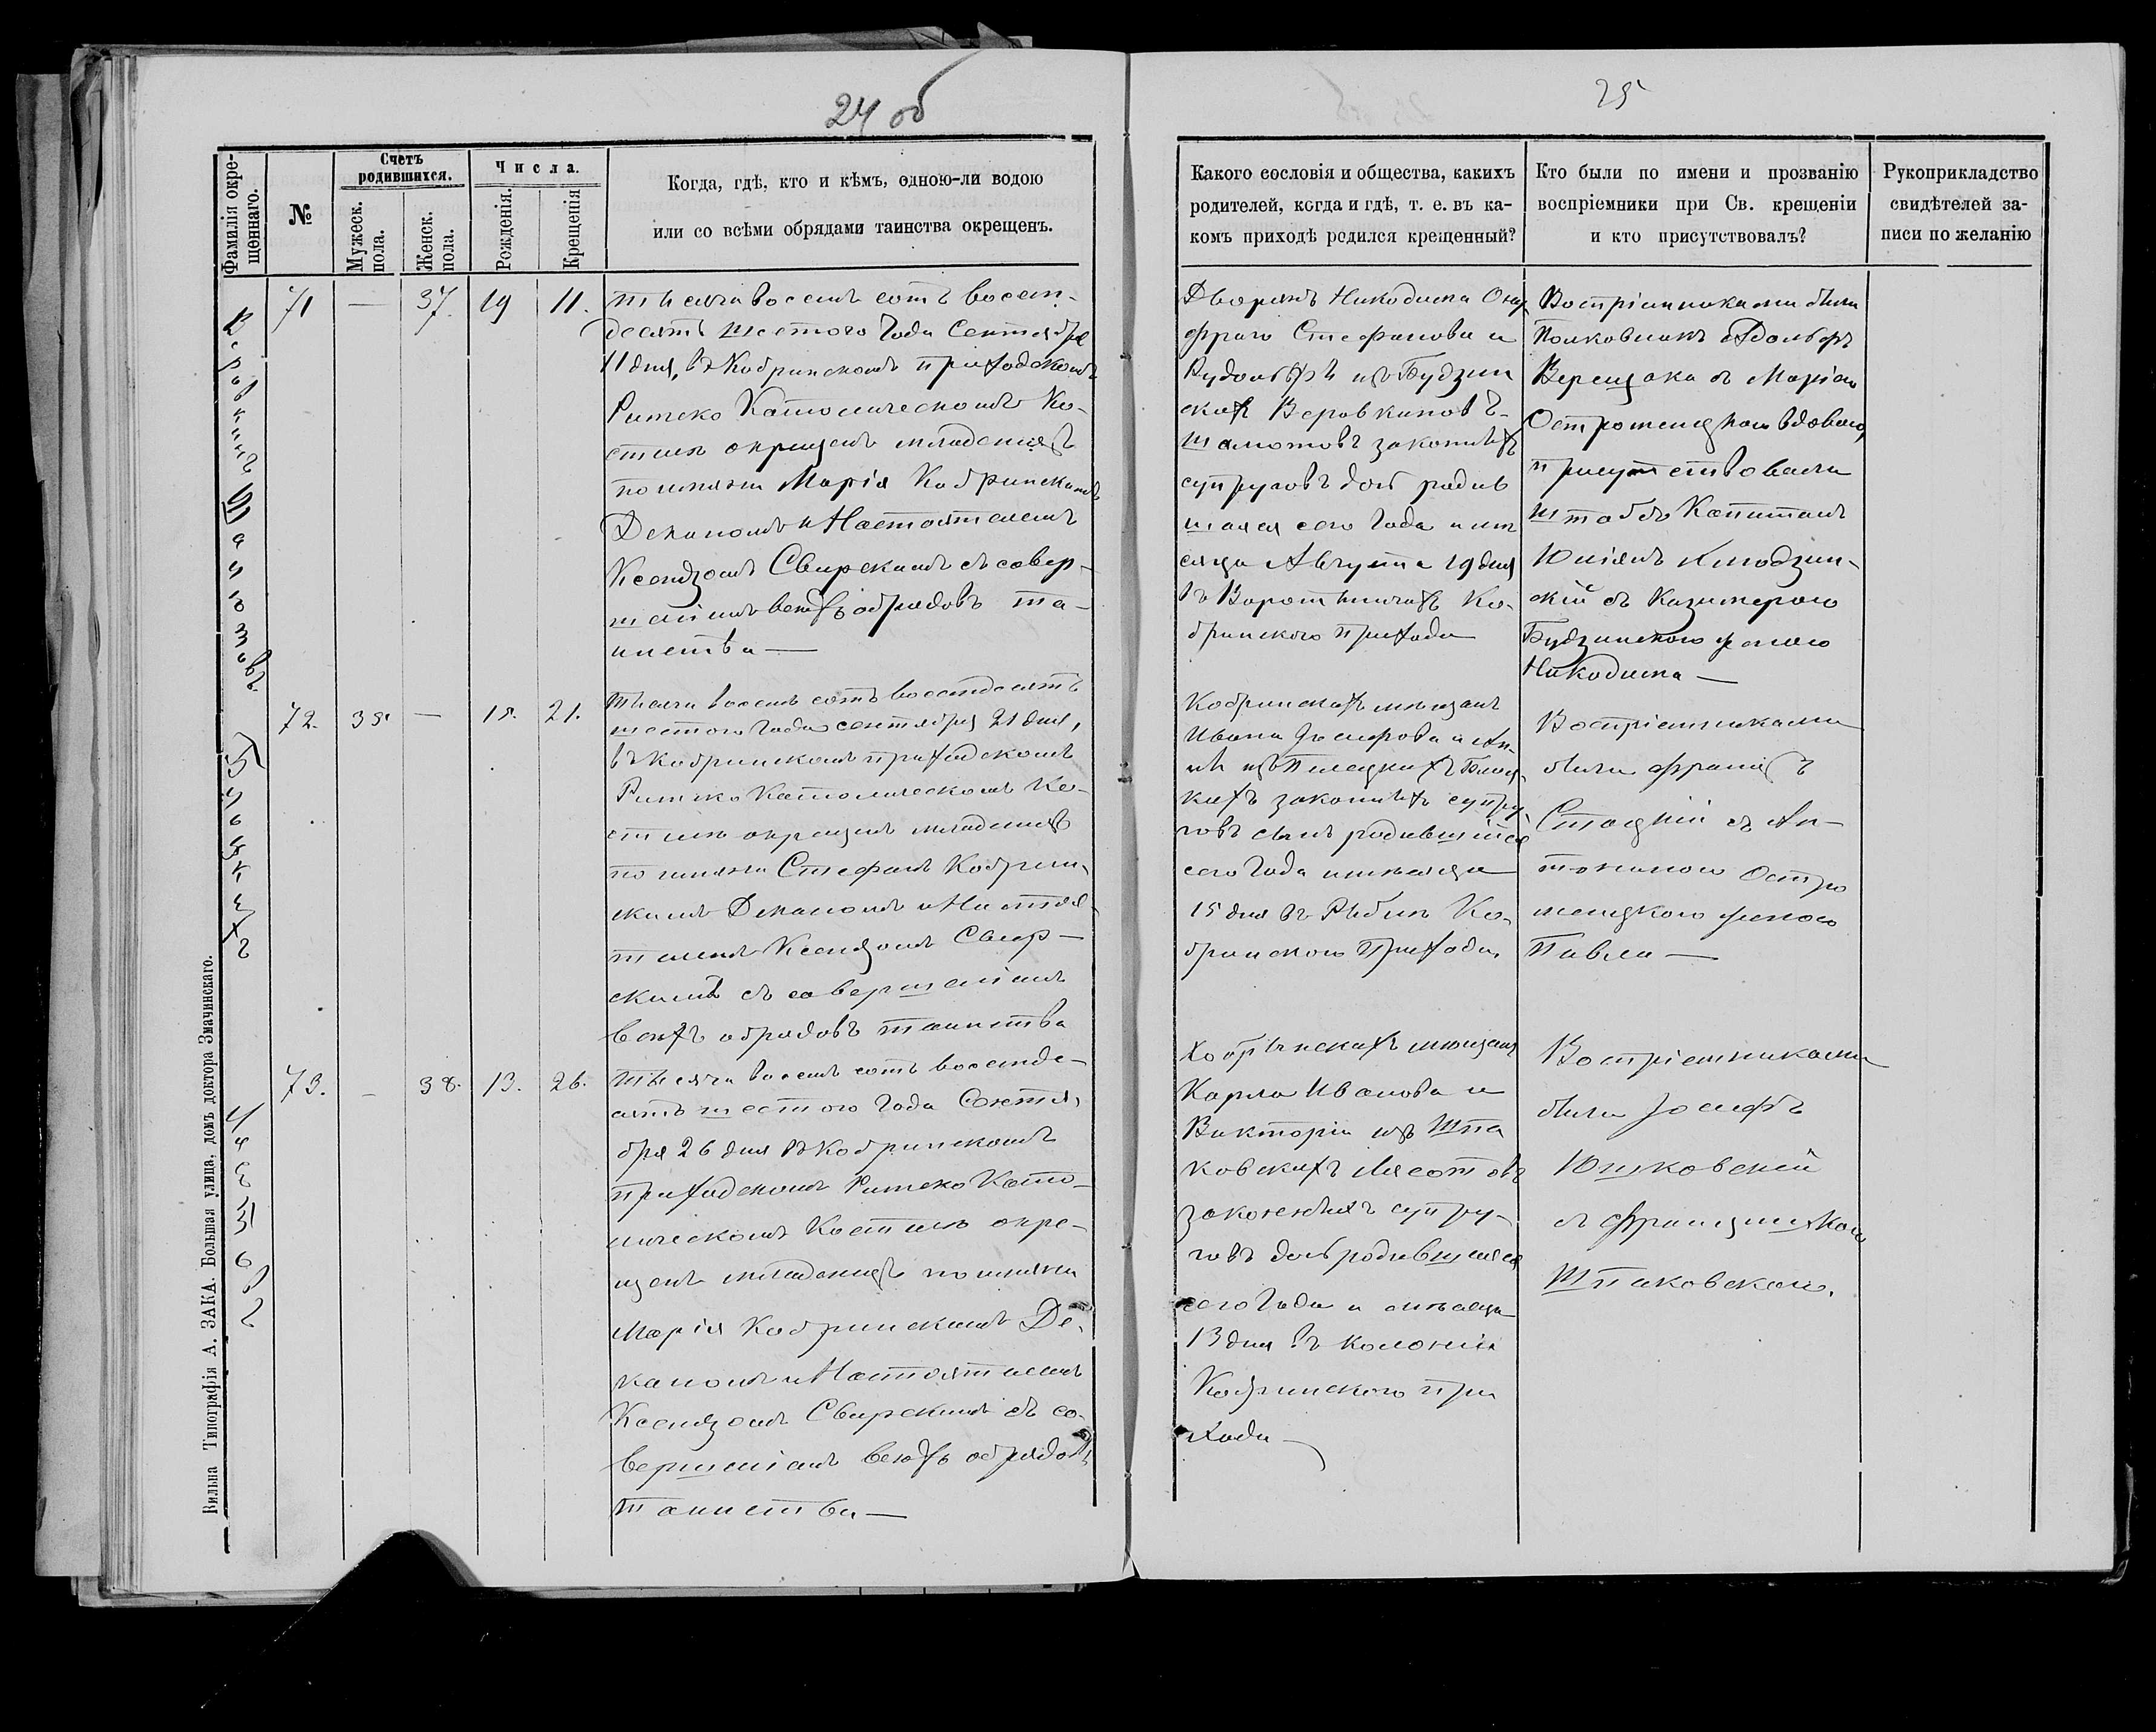 24 об
Фамилія окре-
щеннаго.
№
Счетъ
родившихся.
Мужеск.
пола.
Женск.
пола.
Числа.
Рожденія.
Крещенія
Когда, гдѣ, кто и кѣмъ, одною-ли водою
или со всѣми обрядами таинства окрещенъ.
71
—
37.
19
11.
тысяча восемь сотъ восем-
десятъ шестого года Сентября
11 дня, въ Кобринскомъ приходскомъ
Римско Католическомъ Ко-
стелѣ окрещенъ младенецъ
по имени Марія Кобринскимъ
Деканомъ и Настоятелемъ
Ксендзомъ Свирскимъ съ совер-
шеніемъ всѣхъ обрядовъ та-
инства —
72.
35.
—
15.
21.
Тысяча восемь сотъ восемдесятъ
шестого года сентября 21 дня,
въ Кобринскомъ приходскомъ
Римско Католическомъ Ко-
стелѣ окрещенъ младенецъ
по имени Стефанъ Кобрин-
скимъ Деканомъ и Настоя-
телемъ Ксендзомъ Свир-
скимъ съ совершеніемъ
всѣхъ обрядовъ таинства
73.
—
38.
13.
26.
Тысяча восемь сотъ восемде-
сятъ шестого года Сентя-
бря 26 дня въ Кобринскомъ
приходскомъ Римско Като-
лическомъ Костелѣ окре-
щенъ младенецъ по имени
Марія Кобринскимъ Де-
каномъ и Настоятелемъ
Ксендзомъ Свирскимъ съ со-
вершеніемъ всѣхъ обрядовъ
Таинства —
Вильна Типографія А. ЗАКА. Большая улица, домъ доктора Змачинскаго.
25
Какого сословія и общества, какихъ
родителей, когда и гдѣ, т. е. въ ка-
комъ приходѣ родился крещенный?
Кто были по имени и прозванію
воспріемники при Св. крещеніи
и кто присутствовалъ?
Рукоприкладство
свидѣтелей за-
писи по желанію
Дворянъ Никодима Ону
фрего Стефанова и
Рудольфы изъ Будзин
скихъ Веровкиновъ-
Шалютовъ законныхъ
супруговъ дочь родив
шаяся сего года и мѣ
сяца Августа 19 дня
въ Ко-
бринского прихода
Воспріемниками были
Полковникъ Адольфъ
Верещака съ Маріею
вдовою,
присутствовали
штабсъ Капитанъ
Юліянъ
съ Казимерою
Будзинскою женою
Никодима —
Кобринскихъ мѣщанъ
Ивана Іосифова и Ан-
ны изъ
кихъ законныхъ супру
говъ сынъ родившійся
сего года и мѣсяца
15 дня въ Ко-
бринского Прихода
Воспріемниками
были Францъ
съ Ан-
тониною Остро
женою
Павла —
мѣщанъ
Карла Иванова и
Викторіи изъ Шпа
ковскихъ
законныхъ супру-
говъ дочь родившаяся
сего года и мѣсяца
13 дня въ колоніи
Кобринского при
хода —
Воспріемниками
были Іосифъ
Юшковскій
съ Францишкою
Шпаковскою.